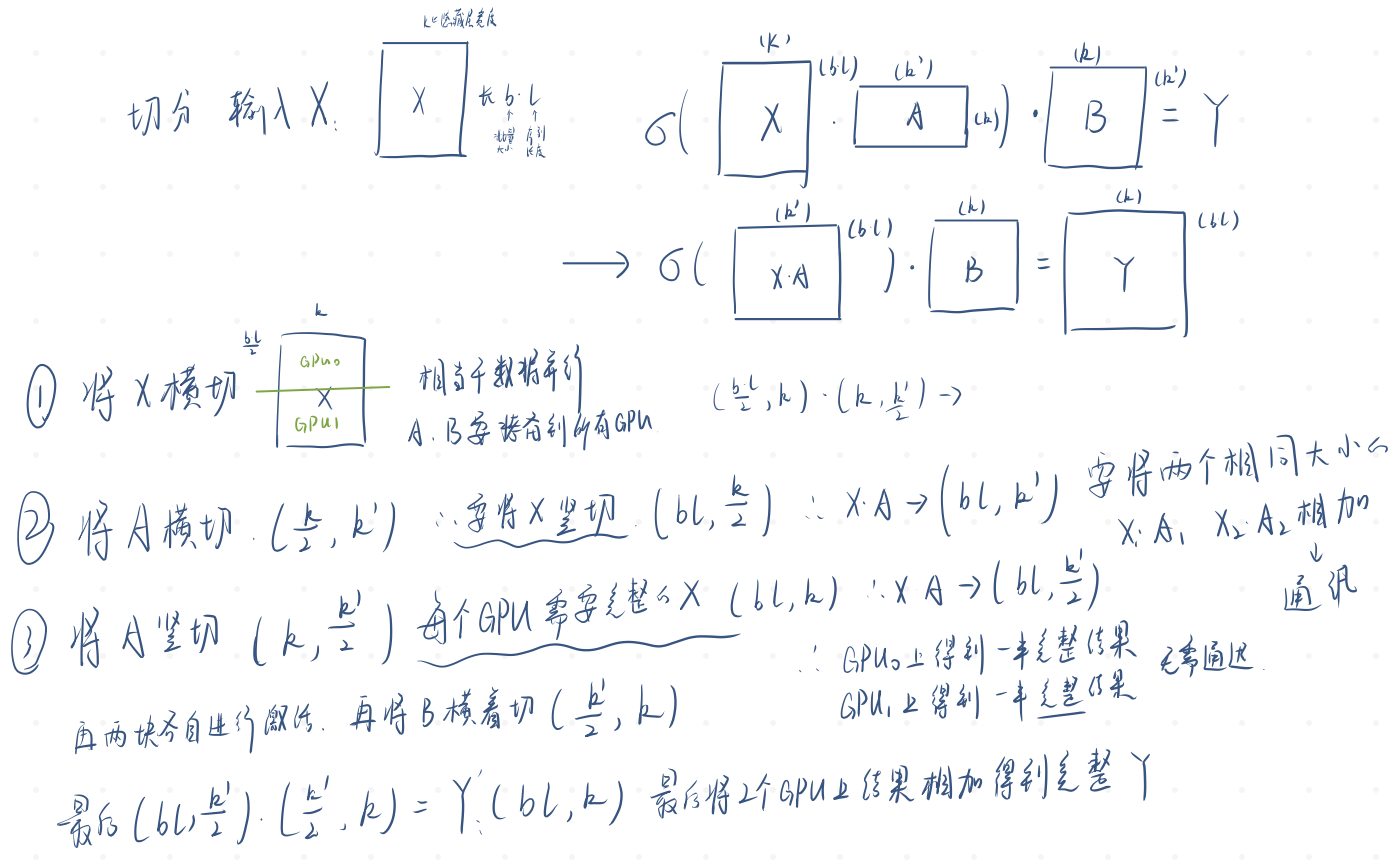 k是隐藏层宽度
切分 输入X: X 长 b·l
批量大小 序列长度
σ( X (k) (b·l) · A (k') (k) ) · B (k) (k') = Y
→ σ( X·A (k') (b·l) ) · B (k) = Y (k) (bl)
① 将X横切 bl/2 k GPU0 X GPU1 相当于数据并行
A、B要装备到所有GPU
(b·l/2, k)·(k, k'/2) →
② 将A横切.(k/2, k') ∴要将X竖切.(bl, k/2) ∴ X·A→(bl, k') 要将两个相同大小的
X₁·A₁ X₂·A₂相加
↓
通讯
③ 将A竖切 (k, k'/2) 每个GPU需要完整的X (bl, k) ∴XA→(bl, k'/2)
∴ GPU₀上得到一半完整结果 无需通讯.
GPU₁上得到一半完整结果
再两块各自进行激活. 再将B横着切 (k'/2, k)
最后(bl, k'/2)·(k'/2, k) = Y: (bl, k) 最后将2个GPU上结果相加得到完整Y